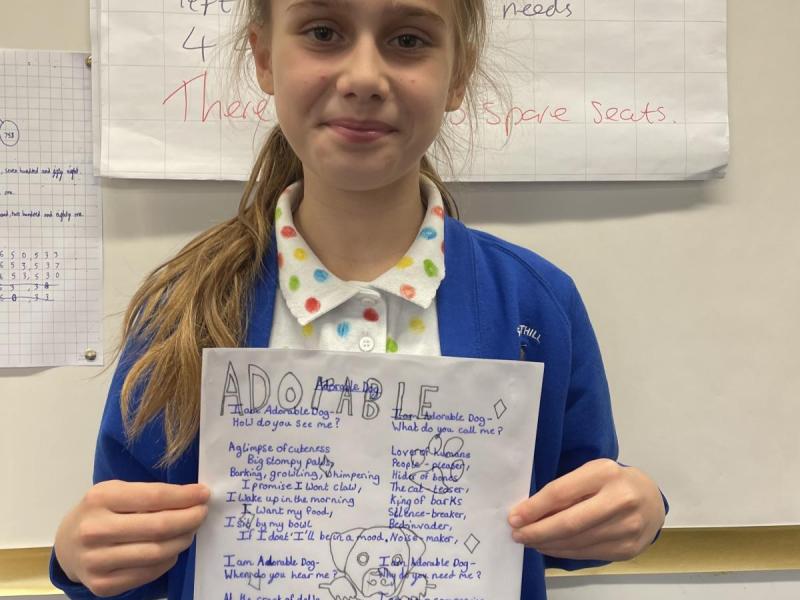 left needs
4
There spare seats.
753
seven hundred and fifty eight.
one.
and, two hundred and eighty one
5 0, 5 3 3
5 3, 5 3 7
5 3, 5 3 0
THILL
ADORABLE
Adorable Dog
I am Adorable Dog-
How do you see me?
A glimpse of cuteness
Big stompy paws,
Barking, growling, whimpering
I promise I wont claw,
I wake up in the morning
I want my food,
I sit by my bowl
If I dont I'll be in a mood.
I am Adorable Dog-
When do you hear me?
I am Adorable Dog-
What do you call me?
Lover of humans
People-pleaser,
Hider of bones
The cat-teaser,
King of barks
Silence-breaker,
Bed invader,
Noise-maker,
I am Adorable Dog-
Why do you need me?